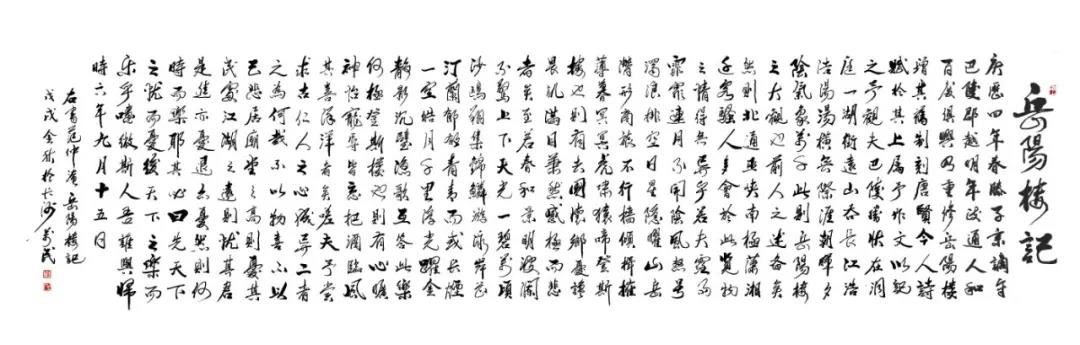 岳陽楼記
庆歷四年春滕子京謫守
巴陵郡越明年政通人和
百廢俱興乃重修岳陽楼
增其舊制刻唐賢今人詩
賦於其上属予作文以記
之予觀夫巴陵勝狀在洞
庭一湖銜遠山吞長江浩
浩湯湯橫無際涯朝暉夕
陰氣象萬千此則岳陽楼
之大觀也前人之述备矣
然則北通巫峽南極瀟湘
迁客騷人多會於此覽物
之情得無異乎若夫霪雨
霏霏連月不開陰風怒号
濁浪排空日星隱曜山岳
潛形商旅不行檣傾楫摧
薄暮冥冥虎嘯猿啼登斯
楼也則有去國懷鄉憂讒
畏譏滿目蕭然感極而悲
者矣至若春和景明波瀾
不驚上下天光一碧萬頃
沙鷗翔集錦鱗游泳岸芷
汀蘭郁郁青青而或長煙
一空皓月千里浮光躍金
靜影沉璧漁歌互答此樂
何極登斯楼也則有心曠
神怡寵辱皆忘把酒臨風
其喜洋洋者矣嗟夫予嘗
求古仁人之心或異二者
之為何哉不以物喜不以
己悲居廟堂之高則憂其
民處江湖之遠則憂其君
是進亦憂退亦憂然則何
時而樂耶其必曰先天下
之憂而憂後天下之樂而
乐乎噫微斯人吾誰與歸
時六年九月十五日
右書范仲淹岳陽楼記
戊戌金秋於長沙萬民